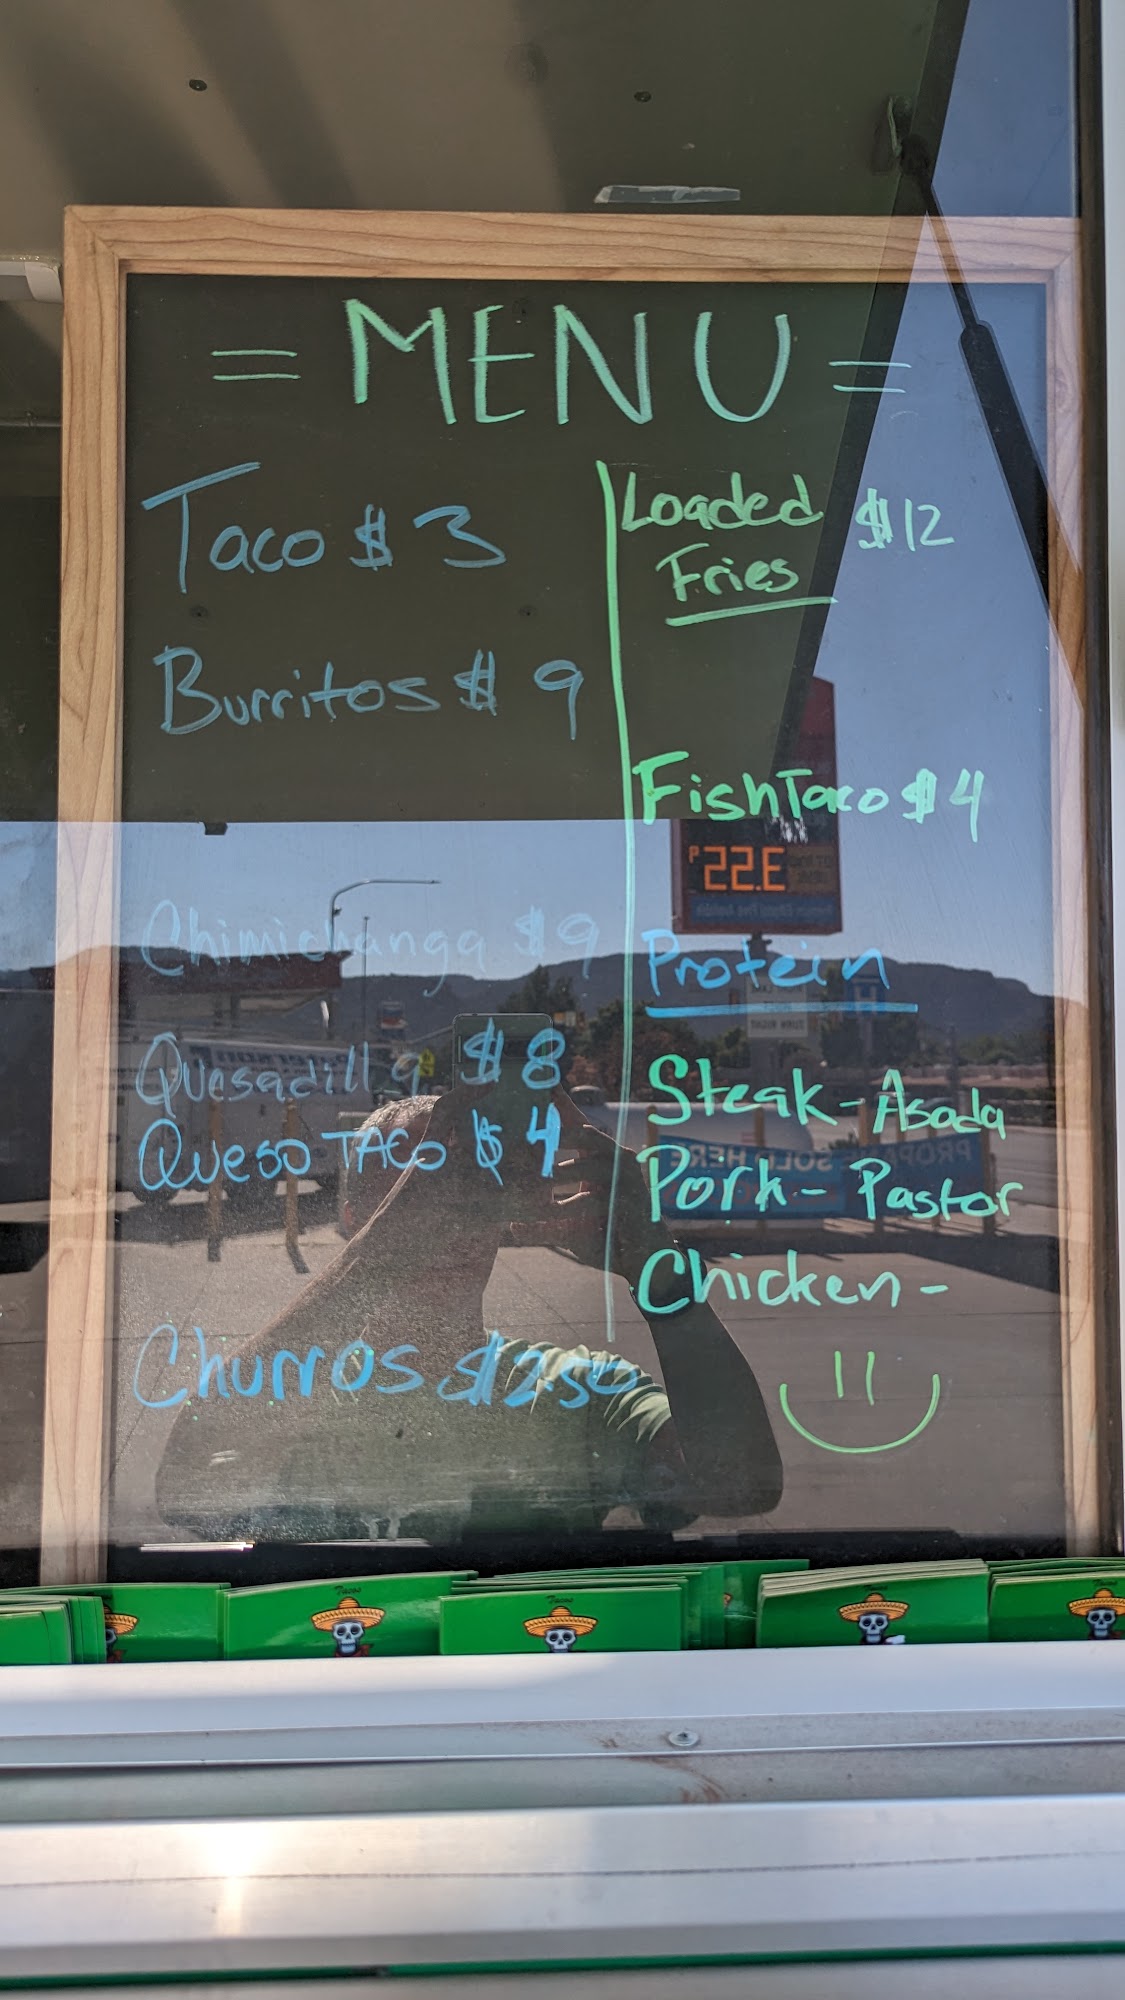 = MENU =
Taco $3
Burritos $9
Chimichanga $9
Quesadilla $8
Queso TACO $4
Churros $2.50
Loaded $12
Fries
Fish Taco $4
Protein
Steak - Asada
Pork - Pastor
Chicken -
Tacos
Tacos
Tacos
Tacos